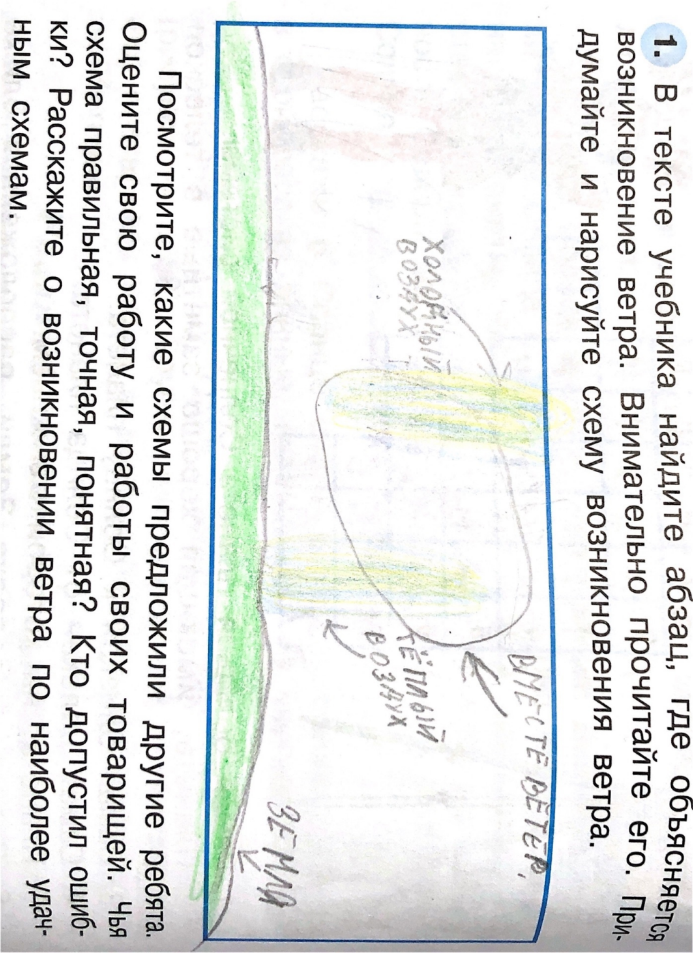 1. В тексте учебника найдите абзац, где объясняется
возникновение ветра. Внимательно прочитайте его. При-
думайте и нарисуйте схему возникновения ветра.
ВМЕСТЕ ВЕТЕР.
ХОЛОДНЫЙ
ВОЗДУХ
ТЁПЛЫЙ
ВОЗДУХ
ЗЕМЛЯ
Посмотрите, какие схемы предложили другие ребята.
Оцените свою работу и работы своих товарищей. Чья
схема правильная, точная, понятная? Кто допустил ошиб-
ки? Расскажите о возникновении ветра по наиболее удач-
ным схемам.